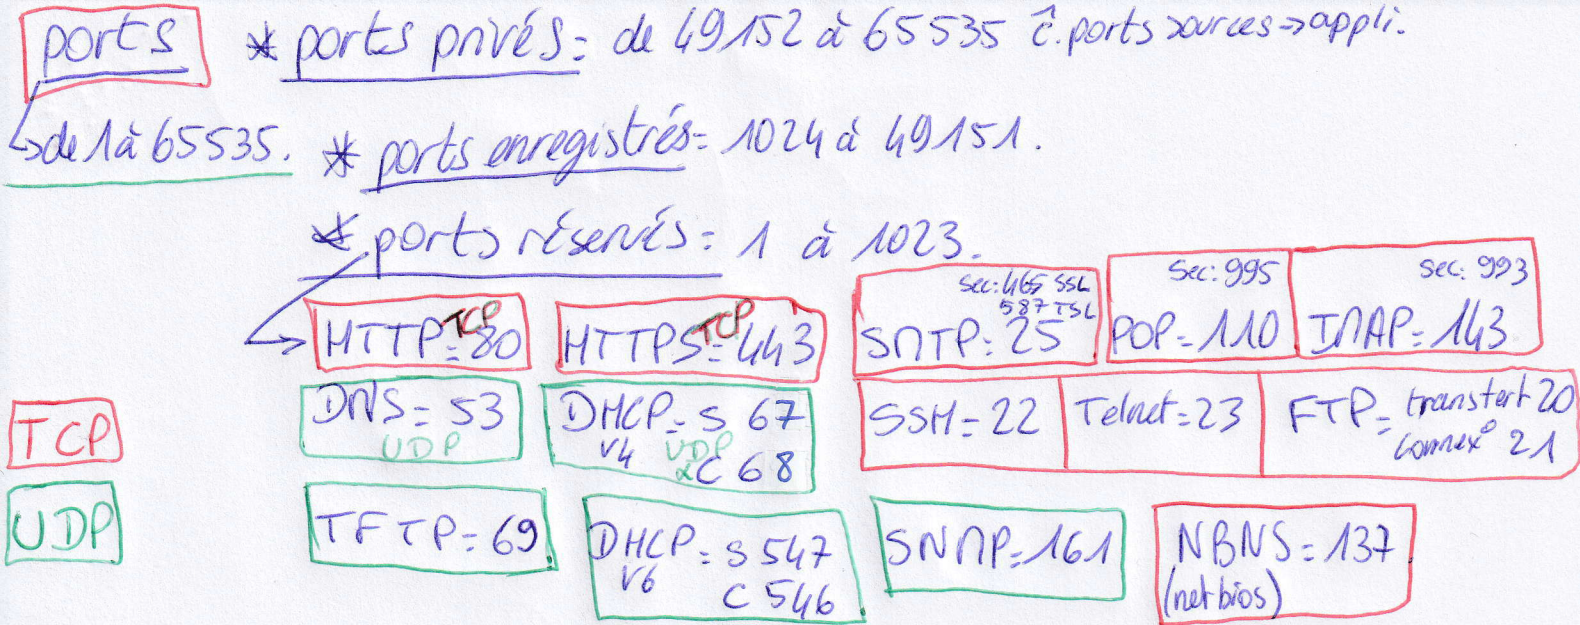 ports
* ports privés = de 49152 à 65535 ĉ. ports sources → appli.
↳ de 1 à 65535.
* ports enregistrés = 1024 à 49151.
* ports réservés = 1 à 1023.
HTTP = 80 TCP
HTTPS = 443 TCP
sec: 465 SSL
587 TSL
SMTP = 25
sec: 995
POP = 110
sec: 993
IMAP = 143
TCP
DNS = 53
UDP
DHCP = S 67
v4 UDP
C 68
SSH = 22
Telnet = 23
FTP = transfert 20
connex° 21
UDP
TFTP = 69
DHCP = S 547
v6 C 546
SNMP = 161
NBNS = 137
(netbios)